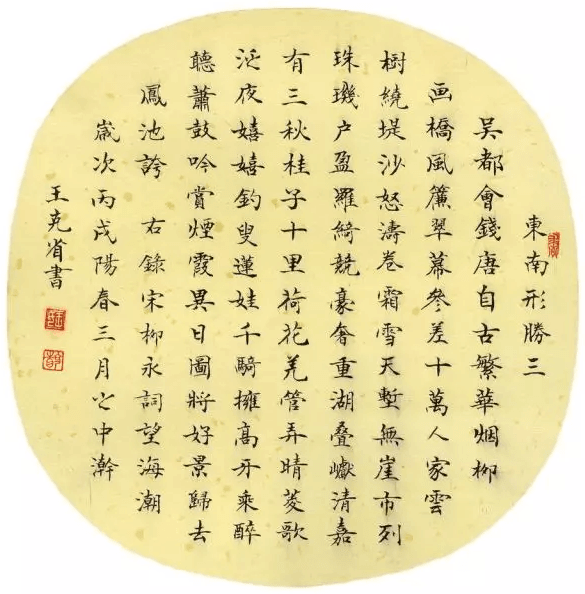 東南形勝三
吳都會錢唐自古繁華烟柳
画橋風簾翠幕參差十萬人家雲
樹繞堤沙怒濤卷霜雪天塹無崖市列
珠璣户盈羅綺競豪奢重湖疊巘清嘉
有三秋桂子十里荷花羌管弄晴菱歌
泛夜嬉嬉釣叟蓮娃千騎擁高牙乘醉
聽蕭鼓吟賞煙霞異日圖將好景歸去
鳳池誇 右錄宋柳永詞望海潮
歲次丙戌陽春三月之中澣
王克省書